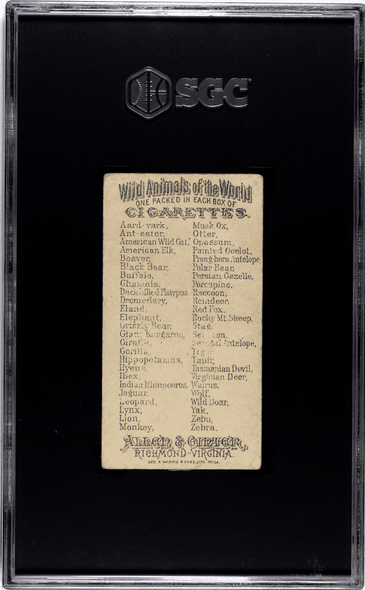 SGC
Wild Animals of the World
ONE PACKED IN EACH BOX OF
CIGARETTES.
Aard-vark,
Ant-eater,
American Wild Cat,
American Elk,
Beaver,
Black Bear,
Buffalo,
Chamois,
Duckbilled Platypus
Dromedary,
Eland,
Elephant,
Grizzly Bear,
Giant Kangaroo,
Giraffe,
Gorilla,
Hippopotamus,
Hyena,
Ibex,
Indian Rhinoceros,
Jaguar,
Leopard,
Lynx,
Lion,
Monkey,
Musk Ox,
Otter,
Opossum,
Painted Ocelot,
Prong-horn Antelope
Polar Bear,
Persian Gazelle,
Porcupine,
Raccoon,
Reindeer,
Red Fox,
Rocky Mt. Sheep,
Stag,
Antelope,
Tapir,
Tasmanian Devil,
Virginian Deer,
Walrus,
Wolf,
Wild Boar,
Yak,
Zebu,
Zebra.
ALLEN & GINTER,
RICHMOND-VIRGINIA.